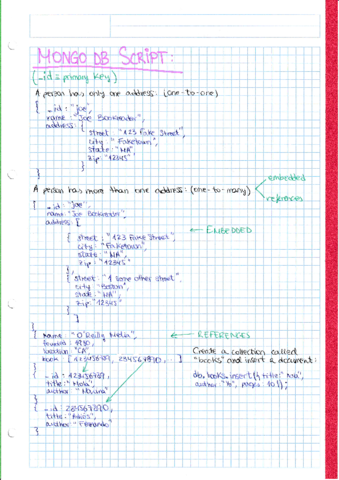 MONGO DB SCRIPT:
(_id = primary key)
A person has only one address: (one-to-one)
{ _id: "joe",
name: "Joe Bookreader",
address: {
street: "123 Fake Street",
city: "Faketown",
state: "MA",
zip: "12345"
}
}
A person has more than one address: (one-to-many)
embedded
references
{ _id: "joe",
name: "Joe Bookreader",
address: [
EMBEDDED
{ street: "123 Fake Street",
city: "Faketown",
state: "MA",
zip: "12345"
},
{ street: "1 some other street",
city: "Boston",
state: "MA",
zip: "12345"
}
]
}
{ name: "O'Reilly Media",
REFERENCES
founded: 1980,
location: "CA",
book: [123456789, 234567890,
]
}
{ _id: 123456789,
title: "Hola",
author:
}
{ _id: 234567890,
title: "Adiós",
author: "Fernando"
}
Create a collection called
"books" and insert a document:
db.books.insert({ title: "
author: " pages: 10});